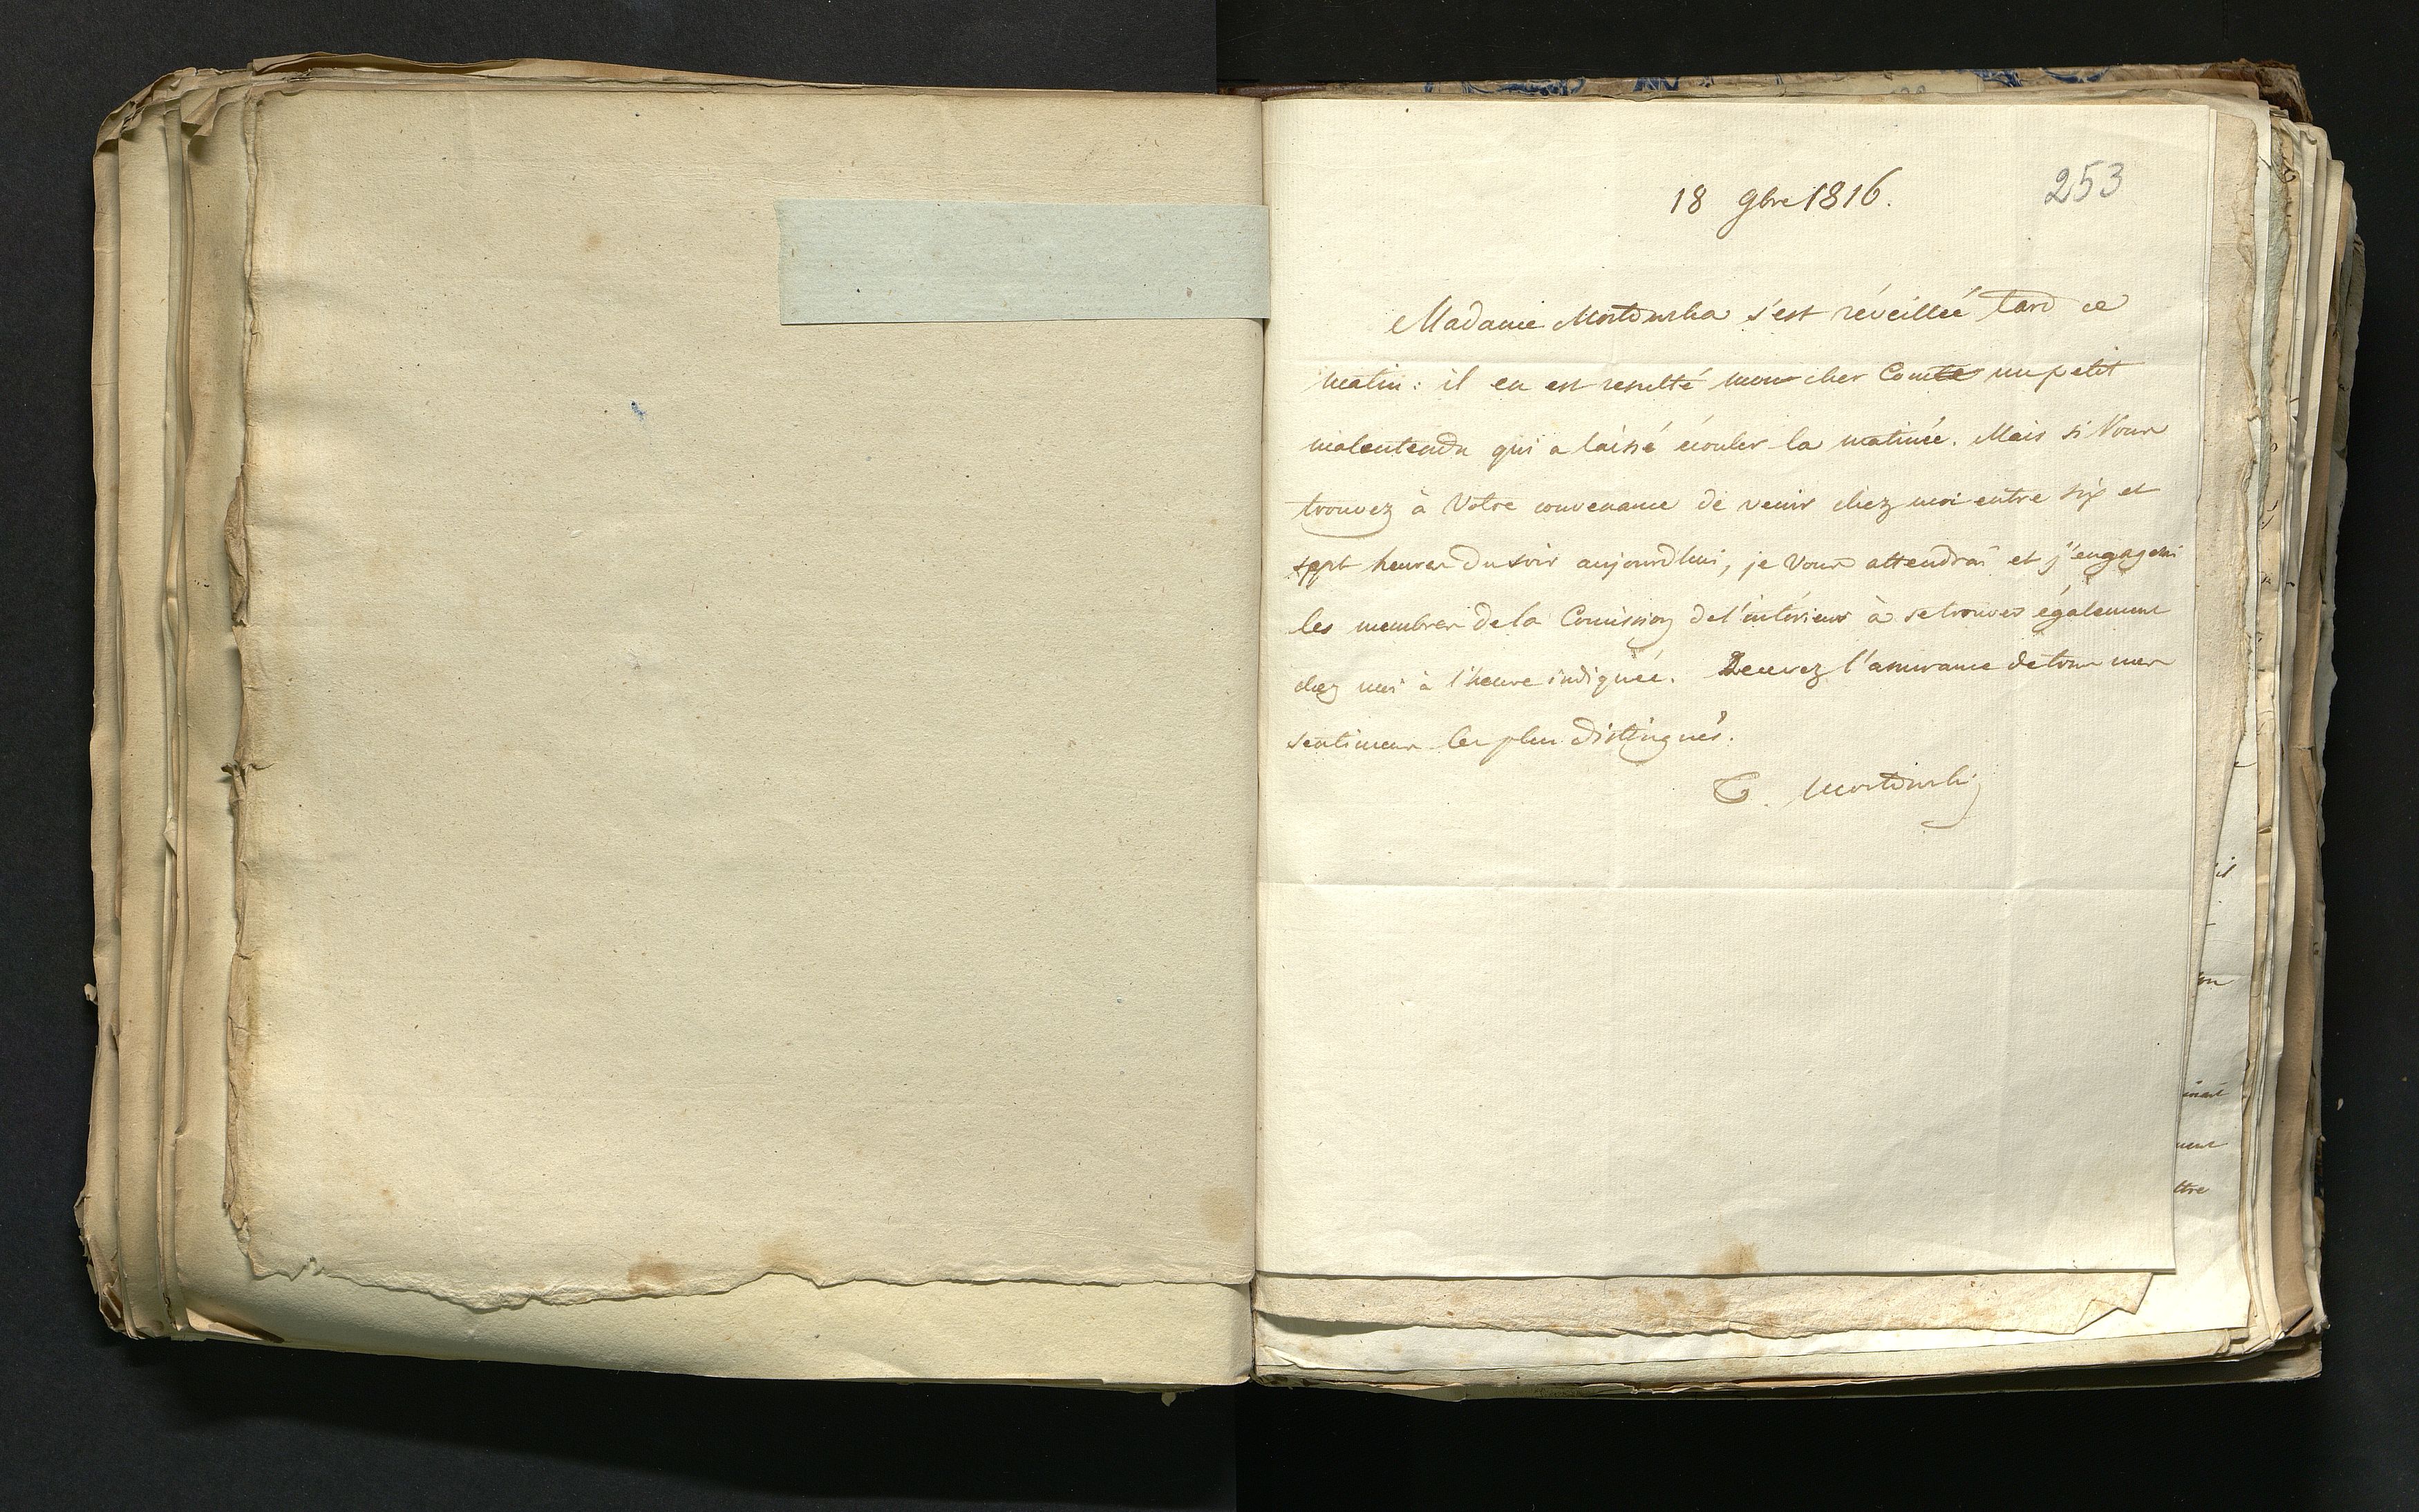 253
18 9bre 1816.
Madame Mostowska s'est réveillée tard ce
matin: il en est resulté mon cher Comte un petit
malentendu qui a laissé écouler la matinée. Mais si Vous
trouvez à Votre convenance de venir chez moi entre six et
sept heures du soir aujourdhui, je Vous attendrai et j'engagerai
les membres de la Comission de l'intérieur à se trouver également
chez moi à l'heure indiquée. Recevez l'assurance de tous mes
sentimens les plus distingués.
T. Mostowski